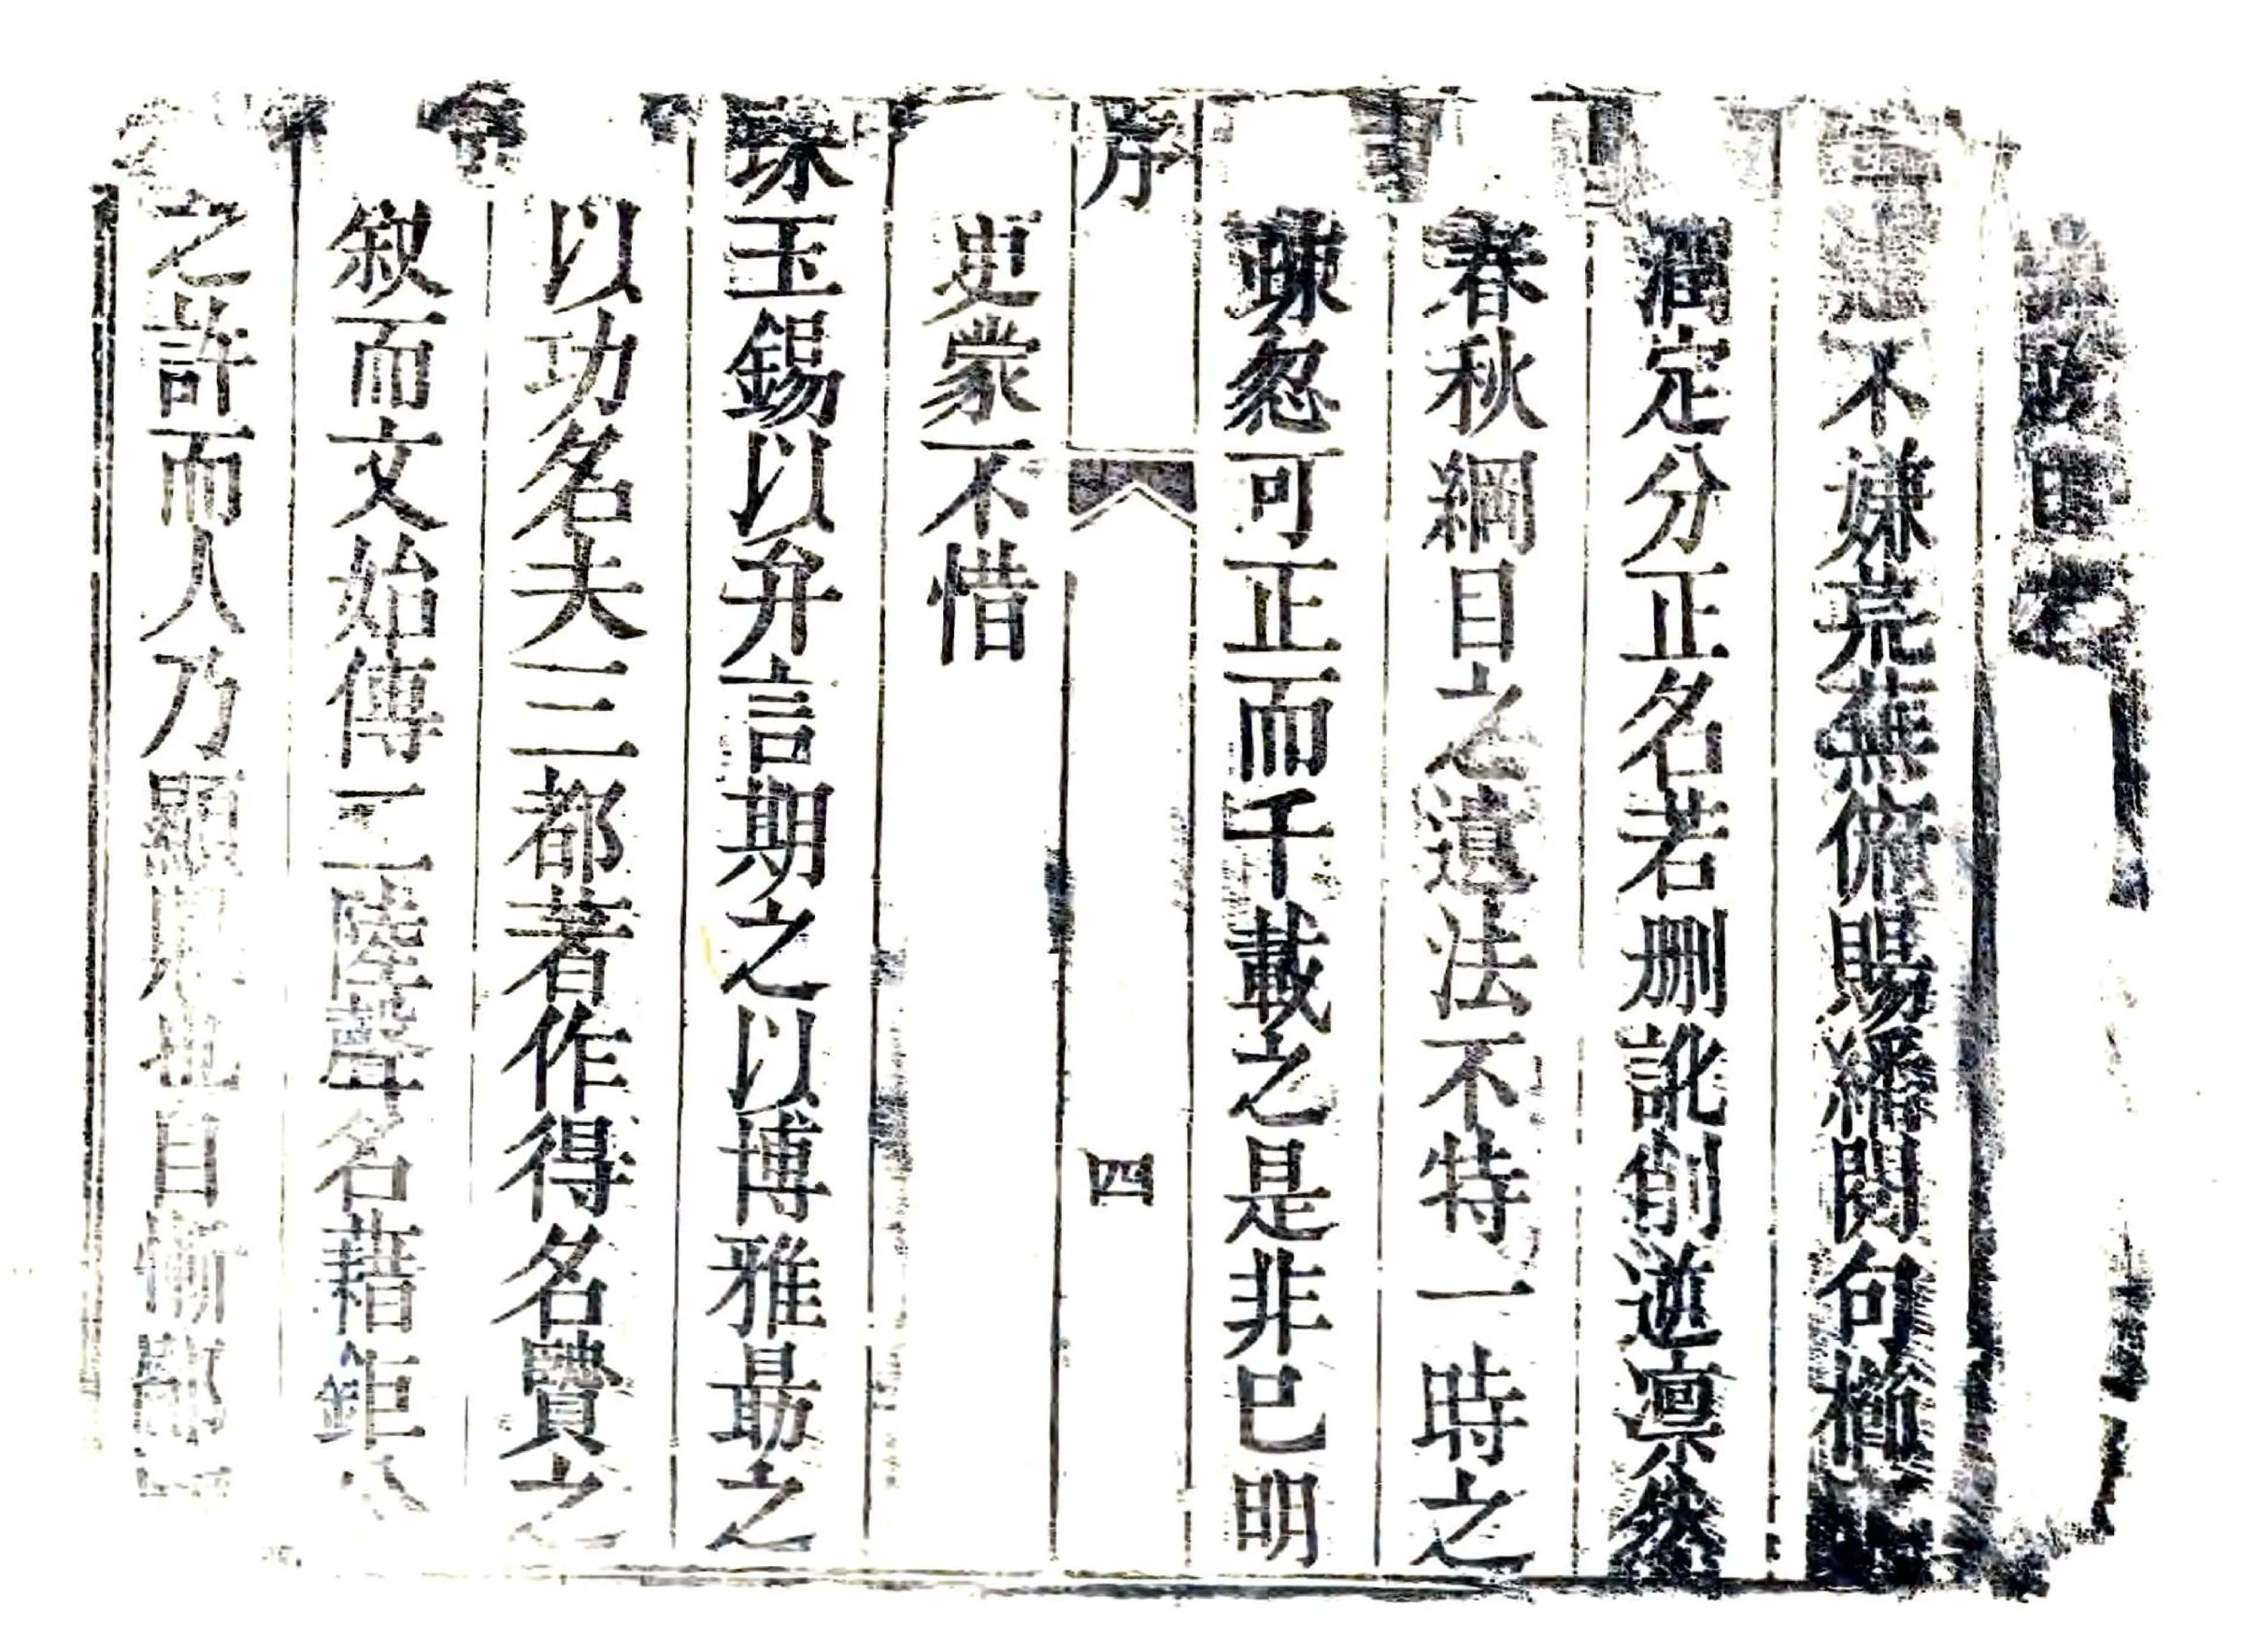 不嫌荒蕪俯賜繙閱句櫛
潤定分正名若删訛削逆凛然
春秋綱目之遺法不特一時之
疎忽可正而千載之是非已明
序
四
更蒙不惜
珠玉錫以弁言期之以博雅最之
以功名夫三都著作得名贊之
叙而文始傳二陸聲名藉鉅公
之許而人乃顯
也自慚鄙